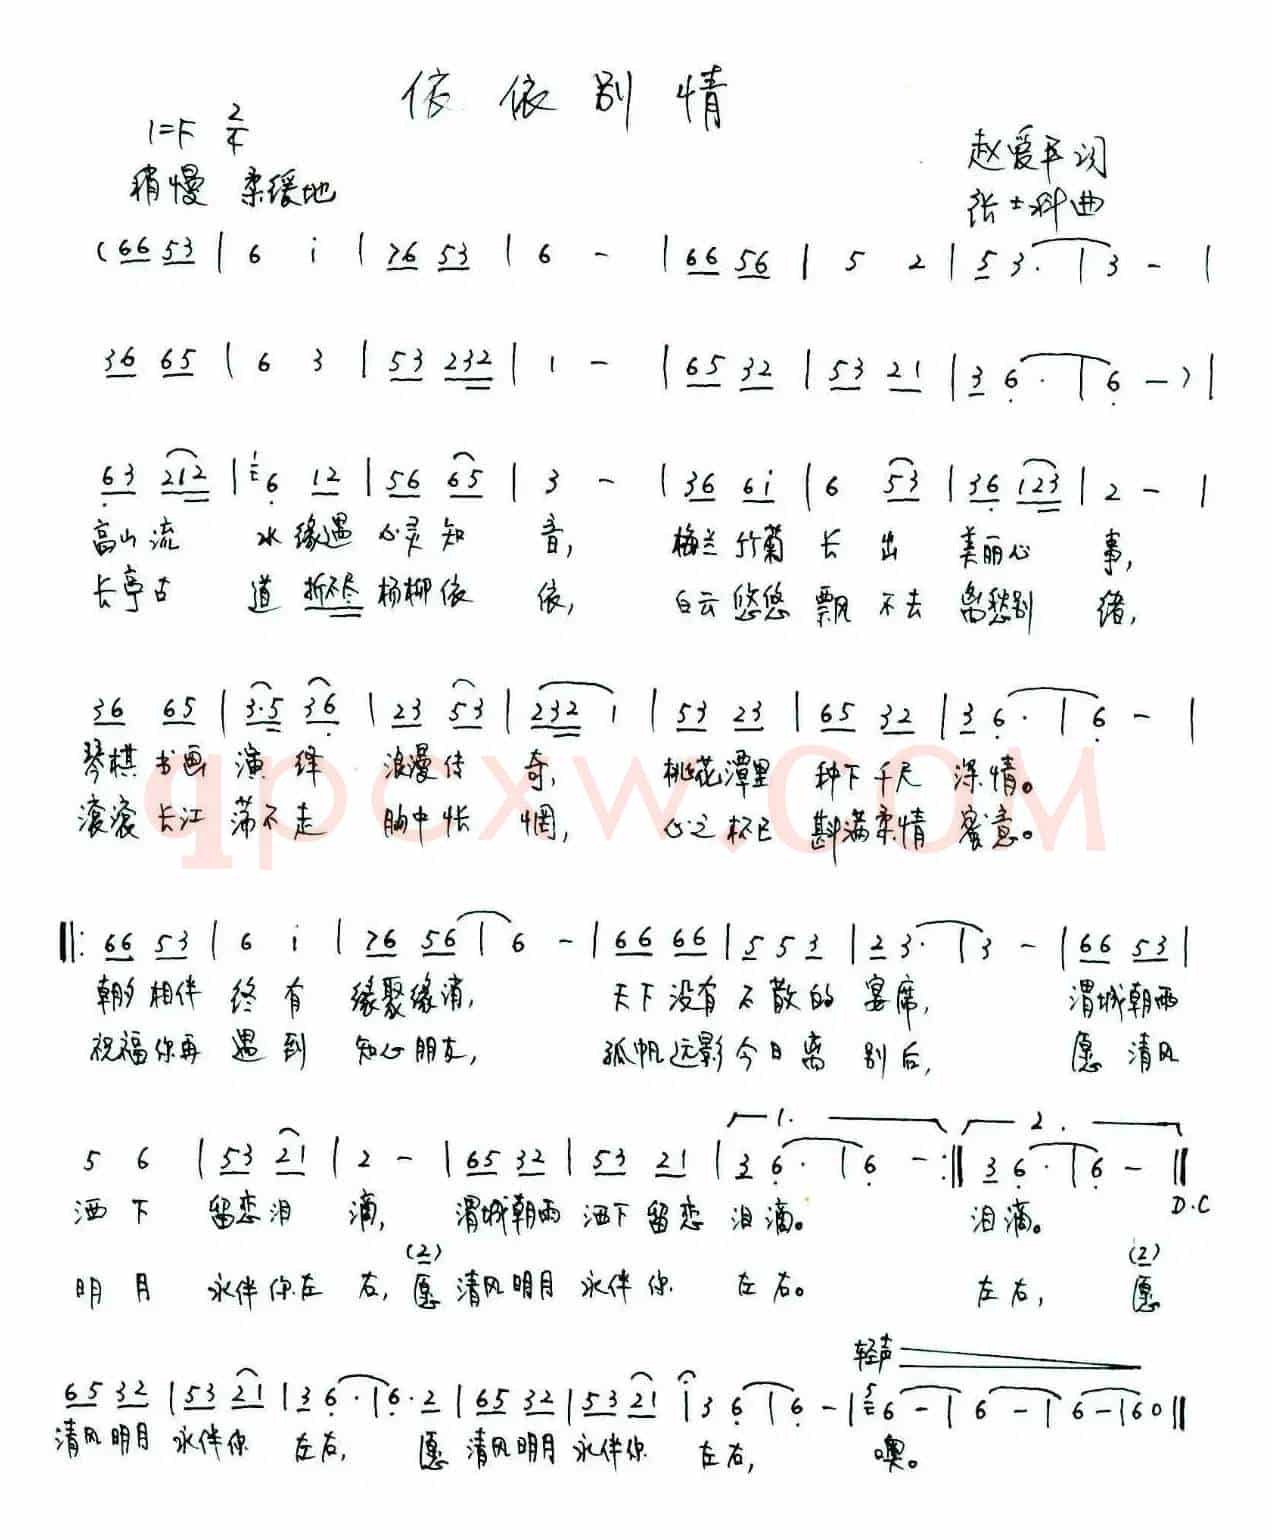 依依别情
1=F 2/4
稍慢 柔缓地
赵爱平词
张士科曲
(66 53 | 6 i | 76 53 | 6 - | 66 56 | 5 2 | 5 3. | 3 - |
36 65 | 6 3 | 53 232 | 1 - | 65 32 | 53 21 | 3 6. | 6 - ) |
63 212 | 6 12 | 56 65 | 3 - | 36 6i | 6 53 | 36 123 | 2 - |
高山流 水缘遇 心灵知 音, 梅兰竹菊 长出 美丽心 事,
长亭古 道折不尽 杨柳依 依, 白云悠悠 飘不去 离愁别 绪,
36 65 | 3.5 36 | 23 53 | 232 1 | 53 23 | 65 32 | 3 6. | 6 - |
琴棋书画 演绎 浪漫传 奇, 桃花潭里 种下千尺 深情。
滚滚长江 荡不走 胸中怅 惘, 心之杯已 斟满柔情 蜜意。
qpcxw.com
‖: 66 53 | 6 i | 76 56 | 6 - | 66 66 | 5 5 3 | 2 3. | 3 - | 66 53 |
朝夕相伴 终有 缘聚缘消, 天下没有 不散的 宴席, 渭城朝雨
祝福你再 遇到 知心朋友, 孤帆远影 今日离 别后, 愿清风
1. 2.
5 6 | 53 21 | 2 - | 65 32 | 53 21 | 3 6. | 6 - :‖ 3 6. | 6 - ‖
D.C
洒下 留恋泪 滴, 渭城朝雨 洒下留恋 泪滴。 泪滴。
(2) (2)
明月 永伴你左 右, 愿 清风明月 永伴你 左右。 左右, 愿
轻声
65 32 | 53 21 | 3 6. | 6. 2 | 65 32 | 53 21 | 3 6 | 6 - | 6 - | 6 - | 6 - | 60 ‖
清风明月 永伴你 左右, 愿 清风明月 永伴你 左右, 噢。